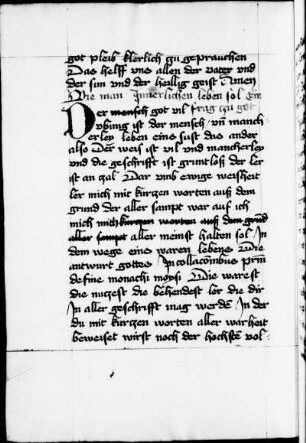 got pleib klerlich czu geprauchen
Das helff vns allen der vater vnd
der sun vnd der heillig geist Amen
Wie man Jnnerlichen leben sol ein
Der mensch got vil frag czu got
vbung ist der mensch / vn̄ manch
erley leben eins sust das ander
also Der weis ist vil vnd mancherley
vnd die geschrifft ist grūtloß der ler
ist an zal Dar vmb ewige weisheit
ler mich mit kurczen worten auß dem
grund der aller sampt war auf ich
mich mich kurczen worten auß dem grūd
aller sampt aller meinst halten sol / In
dem wege eins waren lebens Die
antwurt gottes In collacōibus prīn
de fine monachi moysi Die warest
die nuczest die behendest ler die dir
In aller geschrifft mag werdē / In der
du mit kurczen worten aller warheit
beweiset wirst noch der hochstē vol-